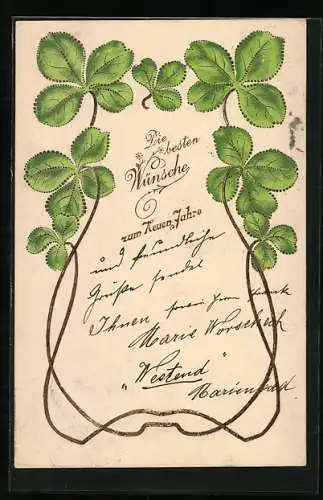 Die
besten
Wünsche
zum Neuen Jahre
und freundliche
Grüße sendet
Ihnen sowie Herrn
Marie Worschech
"Westend"
Marienbad